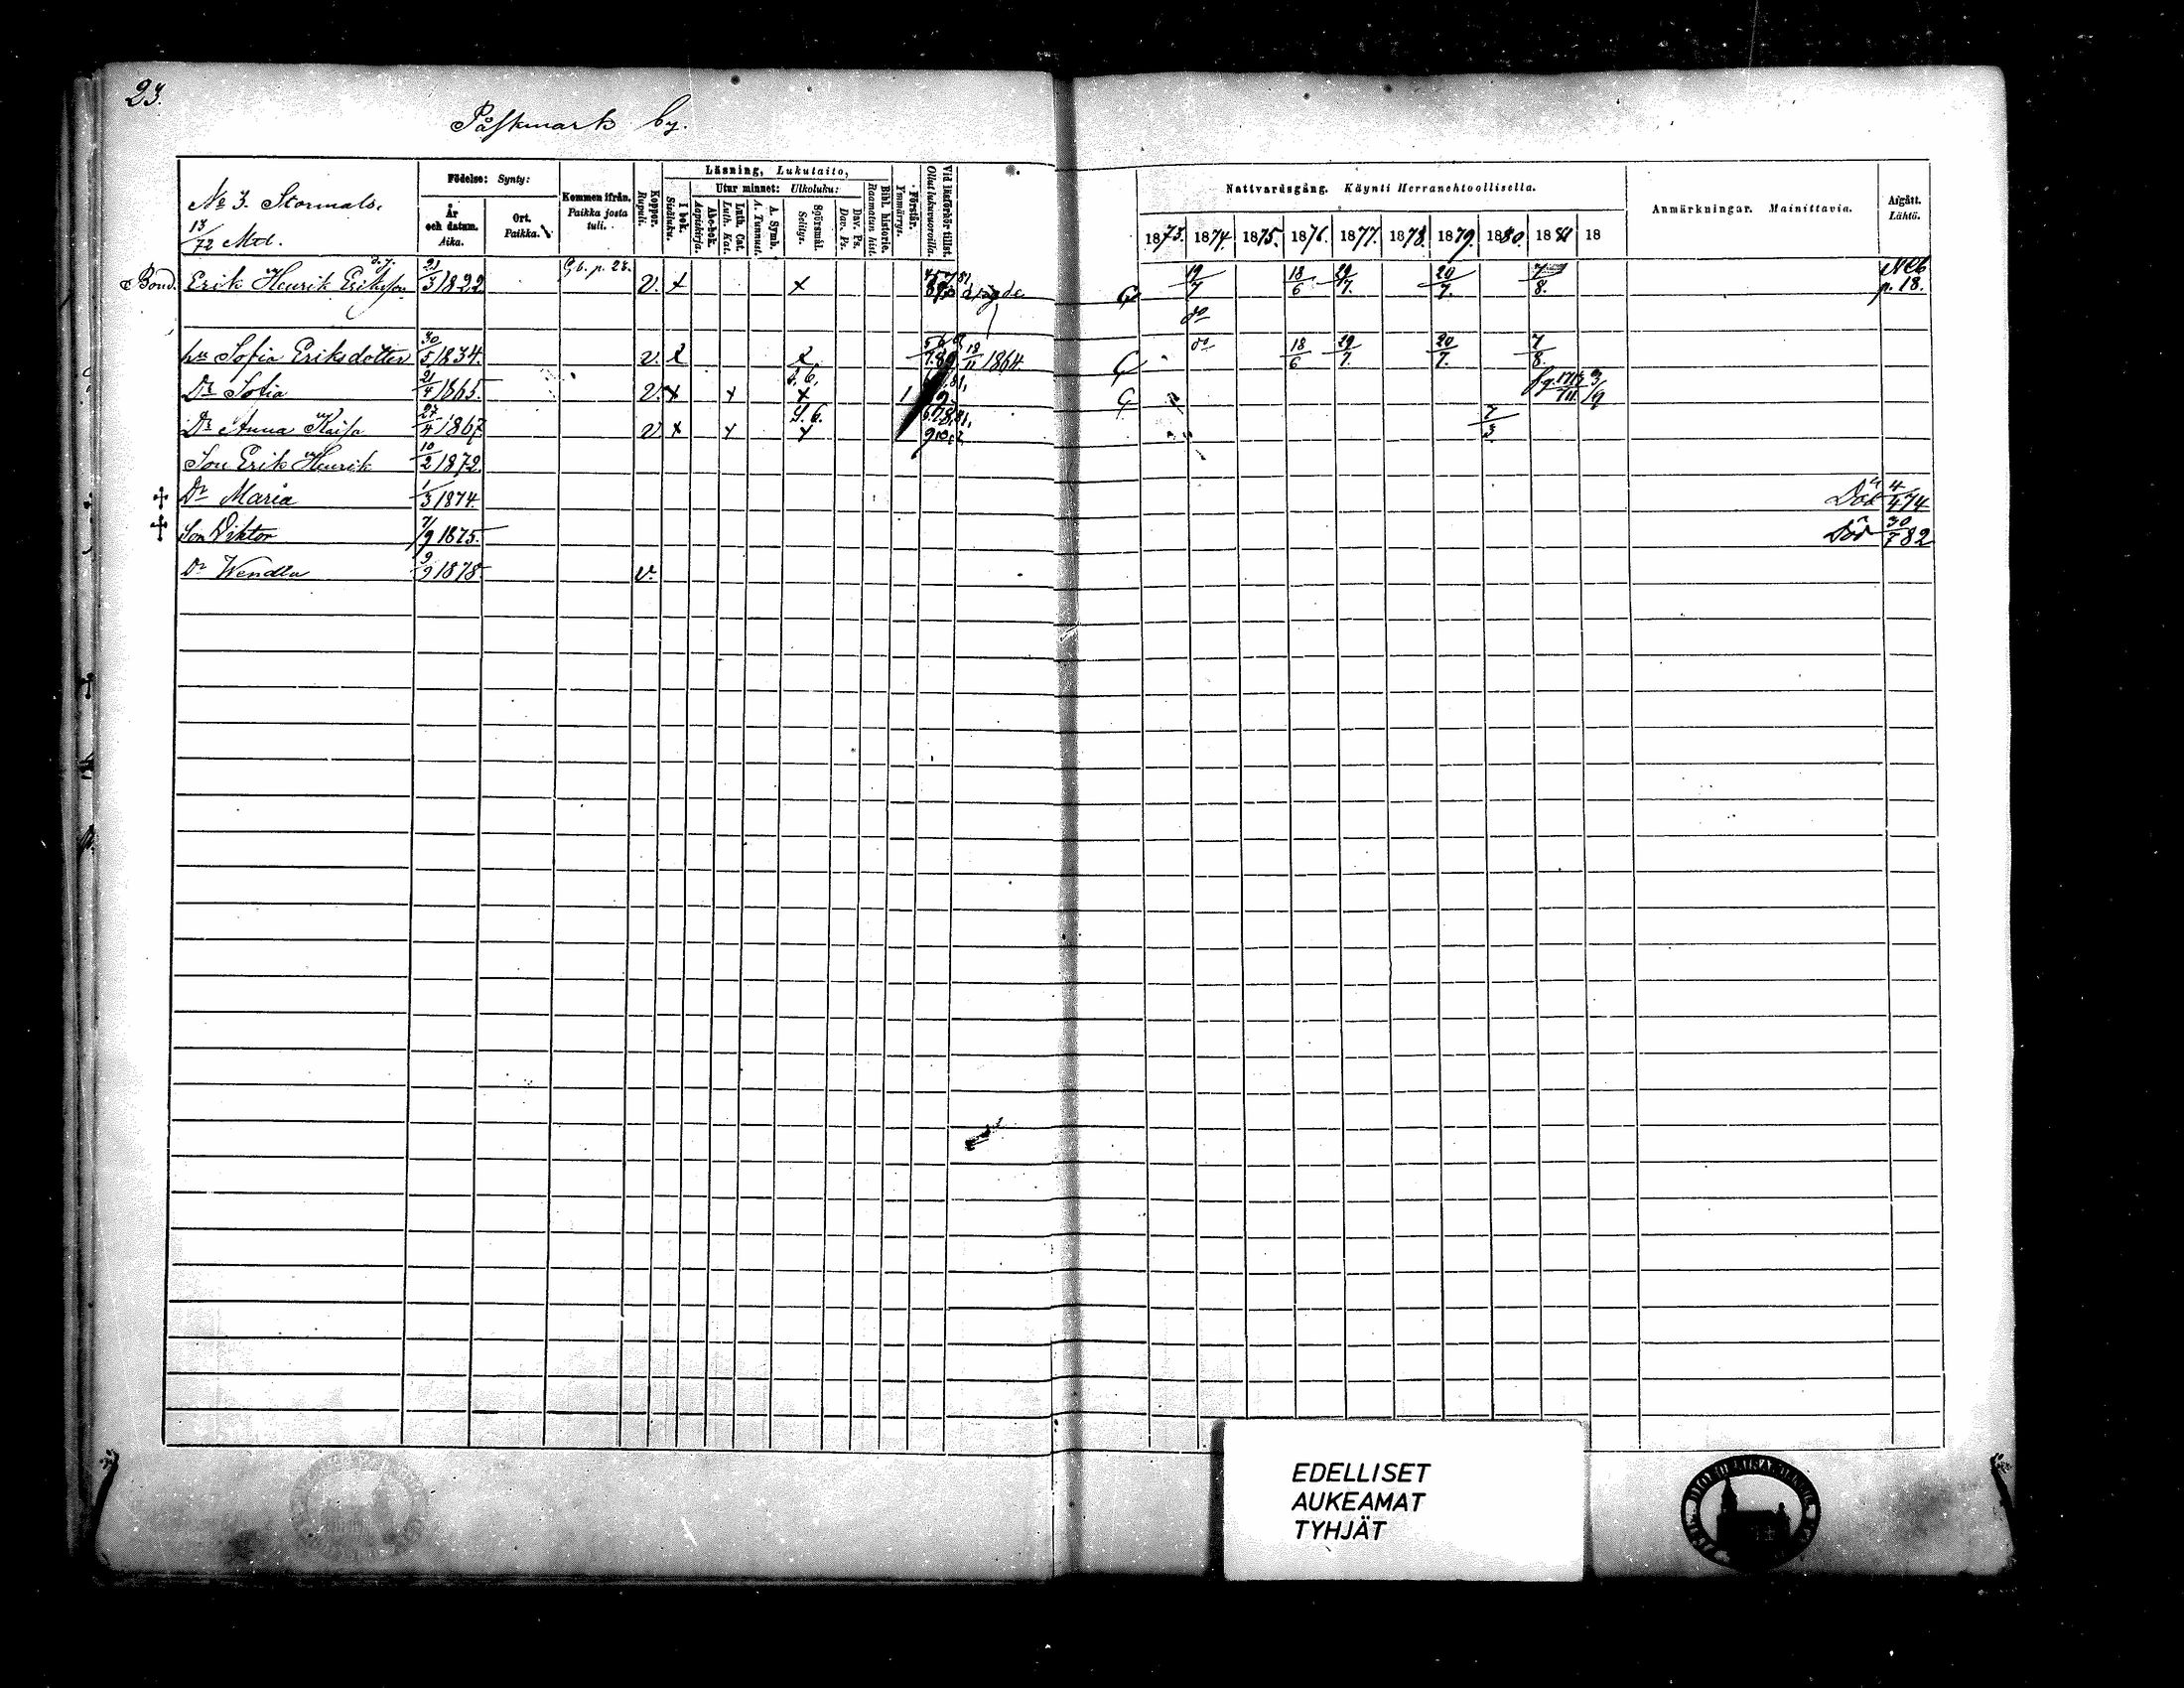 23.
Påskmark by.
No 3. Stormals.
13/72 Mtl.
Födelse: Synty:
År och datum. Aika.
Ort. Paikka.
Kommen ifrån. Paikka josta tuli.
Koppor. Rupuli.
Läsning, Lukutaito,
I bok. Sisäluku.
Utur minnet: Ulkoluku:
Abc-bok. Aapiskirja.
Luth. Cat. Luth. Kat.
A. Symb. A. Tunnust.
Spörsmål. Selitys.
Dav. Ps. Dav. Ps.
Bibl. historie. Raamatun hist.
Förstår. Ymmärrys.
Vid läsförhör tillst. Ollut lukuvuoroilla.
Nattvardsgång. Käynti Herranehtoollisella.
1873. 1874. 1875. 1876. 1877. 1878. 1879. 1880. 1881 18
Anmärkningar. Mainittavia.
Afgått. Lähtö.
Bond. Erik Henrik Eriksson d.y. 21/3 1822 G.b. p. 23. v. x x G 19/7 18/6 29/7. 20/7. 7/8. p. 18.
do
hu Sofia Eriksdotter 30/5 1834. v. 18/11 1864 G do 18/6 29/7. 20/7. 7/8.
Dr Sofia 21/4 1865. v. x x x 1 G
Dr Anna Kaisa 27/4 1867 v x x S.b. x 7/3
Son Erik Henrik 10/2 1872.
Dr Maria 1/3 1874. Död 4/4 74
Son Viktor 7/9 1875. Död 30/7 82
Dr Wendla 9/9 1878. v.
EDELLISET
AUKEAMAT
TYHJÄT